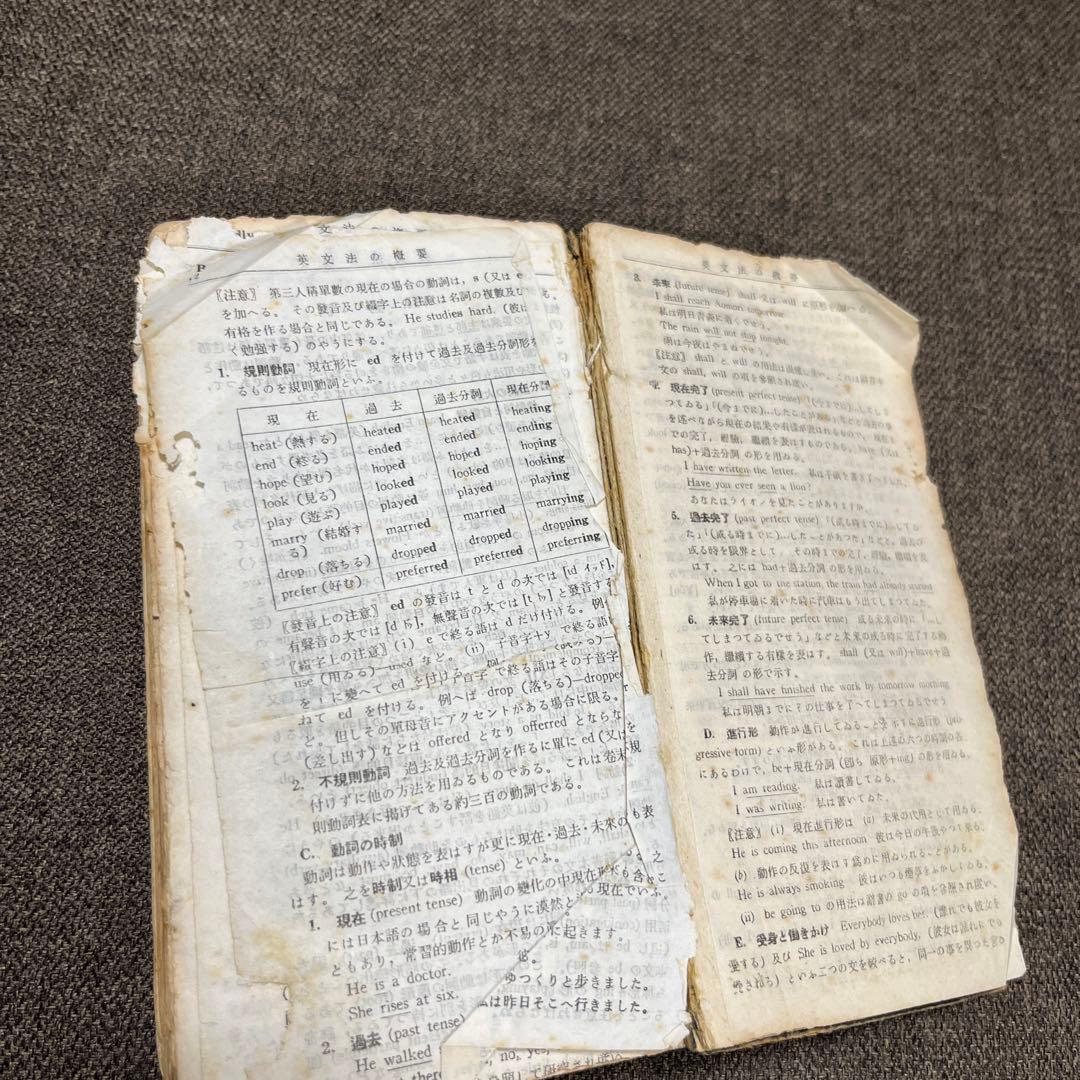 英文法の概要
〘注意〙 第三人稱單數の現在の場合の動詞は, s (又は e
を加へる。 その發音及び綴字上の注意は名詞の複數及び
有格を作る場合と同じである。 He studies hard. (彼は
く勉強する) のやうにする。
1. 規則動詞 現在形に ed を付けて過去及過去分詞形を
るものを規則動詞といふ。
現 在 過 去 過去分詞 現在分詞
heat (熱する) heated heated heating
end (終る) ended ended ending
hope (望む) hoped hoped hoping
look (見る) looked looked looking
play (遊ぶ) played played playing
marry (結婚する) married married marrying
drop (落ちる) dropped dropped dropping
prefer (好む) preferred preferred preferring
〘發音上の注意〙 ed の發音は t と d の次では [id イッド],
有聲音の次では [d ド], 無聲音の次では [t ト] と發音する
〘綴字上の注意〙 (i) e で終る語は d だけ付ける。 例
use (用ゐる)—used など。 (ii) 子音字+y で終る語
を i に變へて ed を付け
字で終る語はその子音字
ねて ed を付ける。 例へば drop (落ちる)—dropped
ど。 但しその單母音にアクセントがある場合に限る。
(差し出す) などは offered となり offerred とならな
2. 不規則動詞 過去及過去分詞を作るに單に ed (又は
付けずに他の方法を用ゐるものである。 これは卷末
則動詞表に揭げてある約三百の動詞である。
C. 動詞の時制
動詞は動作や狀態を表はすが更に現在・過去・未來の
はす。 之を時制又は時相 (tense) といふ。
1. 現在 (present tense) 動詞の變化の中現在形
には日本語の場合と同じやうに漠然と
ともあり, 常習的動作とか不易の
He is a doctor.
She rises at six.
2. 過去 (past tense)
He walked
起きます。
ゆつくりと歩きました。
は昨日そこへ行きました。
no, yes,
英文法の概要
3. 未來 (future tense) shall 又は will
I shall reach Aomori tomorrow
私は明日靑森に着くでせう。
The rain will not stop tonight.
雨は今夜はやまぬでせう。
〘注意〙 shall と will の用法は
文の shall, will の項を參照され度い。
現在完了 (present perfect tense) 「(今までに)…した
つてゐる」「(今までに)…したことがある」などと過去の事
を述べながら現在の結果や有樣が表はれるもので, 現在ま
での完了, 經驗, 繼續を表はすものである。 have (又は
has)+過去分詞 の形を用ゐる。
I have written the letter. 私は手紙を書きました。
Have you ever seen a lion?
あなたはライオンを見たことがありますか。
5. 過去完了 (past perfect tense) 「(或る時までに)…してゐ
た」「(或る時までに)…したことがあつた」などと, 過去の
或る時を限界として, その時までの完了, 經驗, 繼續を表
はす。 之には had+過去分詞 の形を用ゐる。
When I got to the station, the train had already started
私が停車場に着いた時に汽車はもう出てしまつてゐた。
6. 未來完了 (future perfect tense) 或る未來の時に「…し
てしまつてゐるでせう」などと未來の或る時に完了する動
作, 繼續する有樣を表はす。 shall (又は will)+have+過
去分詞 の形で示す。
I shall have finished the work by tomorrow morning
私は明朝までにその仕事を了へてしまつてゐるでせう
D. 進行形 動作が進行してゐること を示すに進行形 (pro-
gressive form) といふ形がある。 これは上述の六つの時制の各
にあるわけで, be+現在分詞 (卽ち 原形+ing) の形を用ゐる。
I am reading. 私は讀書してゐる。
I was writing. 私は書いてゐた。
〘注意〙 (i) 現在進行形は (a) 未來の代用として用ゐる。
He is coming this afternoon 彼は今日の午後やつて來る。
(b) 動作の反復を表はす爲めに用ゐられることがある。
He is always smoking 彼はいつも煙草をふかしてゐる。
(ii) be going to の用法は辭書の go の項を參照され度い。
E. 受身と働きかけ Everybody loves her. (誰れでも彼女を
愛する) 及び She is loved by everybody. (彼女は誰れにでも
愛される) といふ二つの文を較べると, 同一の事を異つた